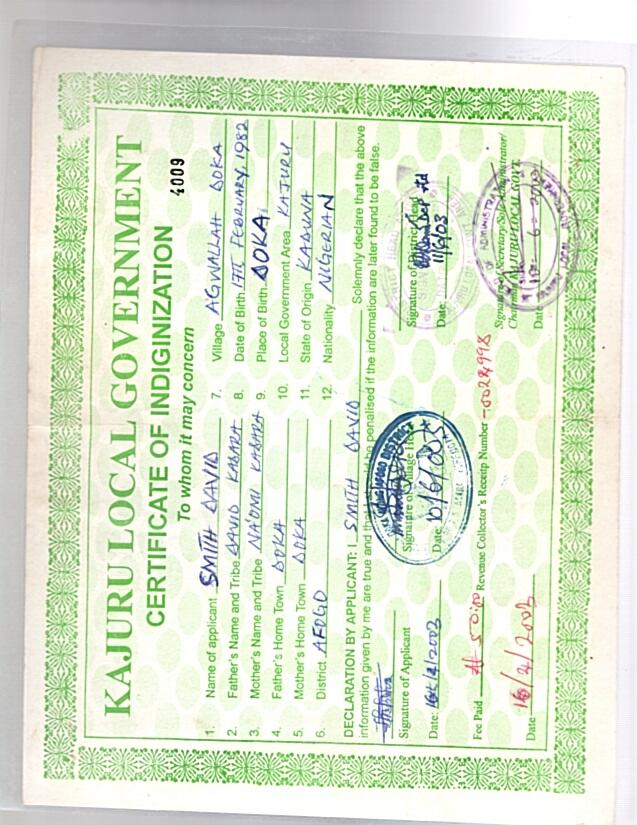 KAJURU LOCAL GOVERNMENT
CERTIFICATE OF INDIGINIZATION
To whom it may concern
4009
1. Name of applicant SMITH DAVID
2. Father's Name and Tribe DAVID KADARA
3. Mother's Name and Tribe NA'OMI KADARA
4. Father's Home Town DOKA
5. Mother's Home Town DOKA
6. District AFOGO
7. Village AGWALLAH DOKA
8. Date of Birth 17TH FEBRUARY, 1982
9. Place of Birth DOKA
10. Local Government Area KAJURU
11. State of Origin KADUNA
12. Nationality NIGERIAN
DECLARATION BY APPLICANT: I SMITH DAVID Solemnly declare that the above
information given by me are true and that be penalised if the information are later found to be false.
Signature of Applicant
Date: 2003
Signature of Village Head
Date: 10/6/003
Signature of District Head
Date: 11/6/03
Fee Paid ₦ 50:00 Revenue Collector's Receitp Number - 0028998
Date 18/2/2003
Signature of Secretary/Sole Administrator/
Chairman KAJURU LOCAL GOVT.
Date: